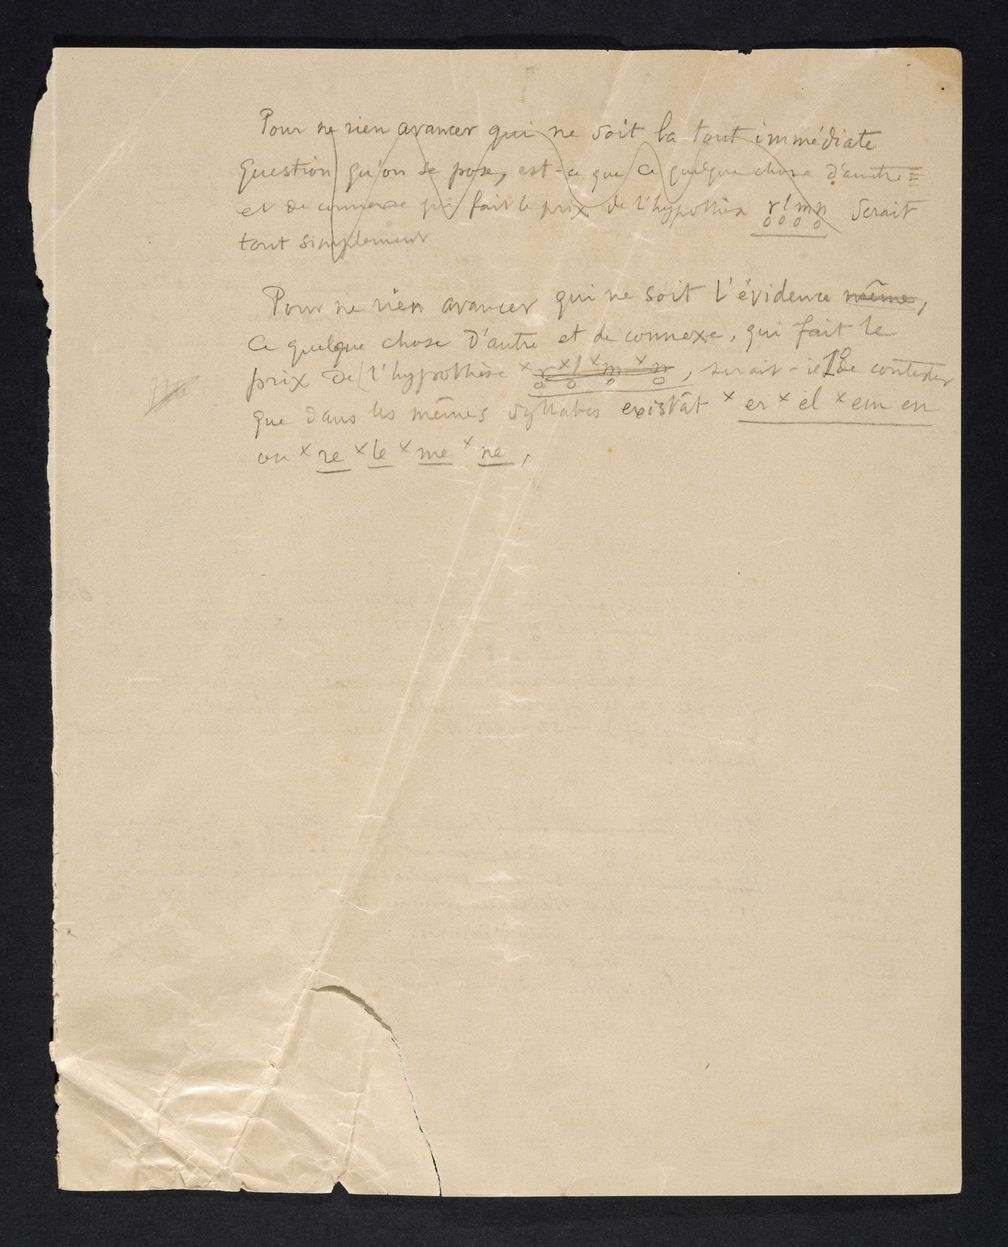 Pour ne rien avancer qui ne soit la tout immédiate
question qu'on se pose, est-ce que ce quelque chose d'autre
et de connexe qui fait le prix de l'hypothèse r̥ l̥ m̥ n̥ serait
tout simplement
Pour ne rien avancer qui ne soit l'évidence même,
ce quelque chose d'autre et de connexe, qui fait le
prix de l'hypothèse ˣr̥ ˣl̥ ˣm̥ ˣn̥, serait-ce 1º de contester
que dans les mêmes syllabes existât ˣer ˣel ˣem en
ou ˣre ˣle ˣme ˣne,